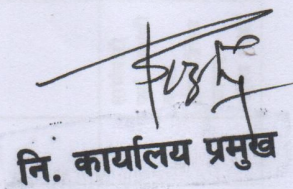 नि. कार्यालय प्रमुख